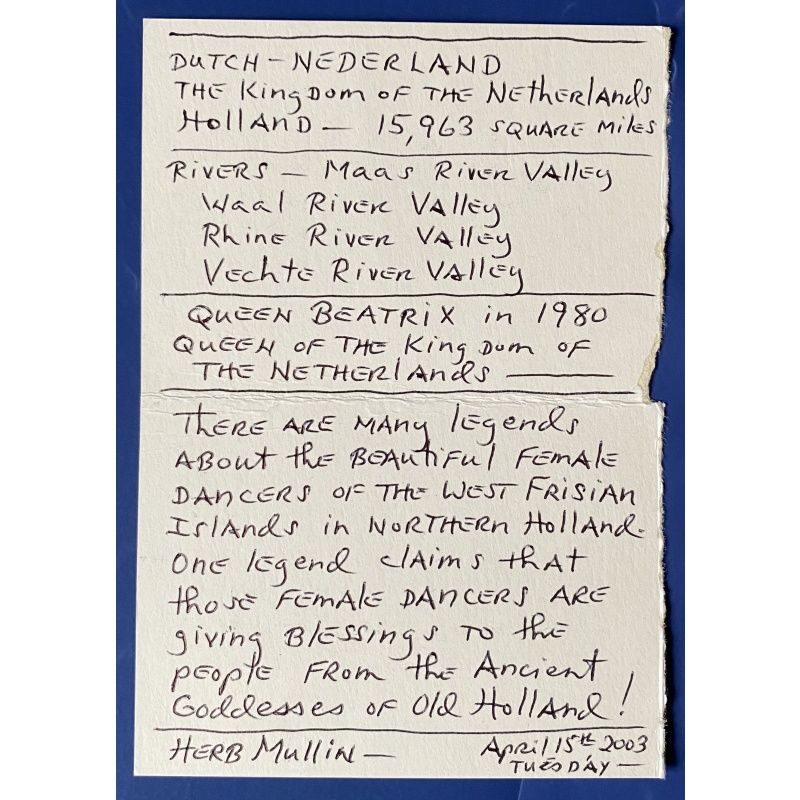 DUTCH - NEDERLAND
THE KingDom OF THE NETHERlAnds
HollAND — 15,963 SQUARE MilEs
RIVERS — Maas RIVER VAllEy
Waal RIVER VAllEy
RhinE RIVER VAllEy
VEchtE RIVER VAllEy
QUEEN BEATRIX in 1980
QUEEN OF THE KingDom OF
THE NETHERlAnds ———
THERE ARE MANy lEgEnds
ABOUt thE BEAUtiFUl FEMAlE
DANCERS OF THE WEST FRISIAN
IslAnds in NORTHERN HollAND.
ONE lEgEnd clAims thAt
thosE FEMAlE DANCERS ARE
giving BlEssings TO thE
pEoplE FROM thE AnciEnt
GoddEssEs OF Old HollAnd!
HERB Mullin — April 15th 2003
TUESDAY —